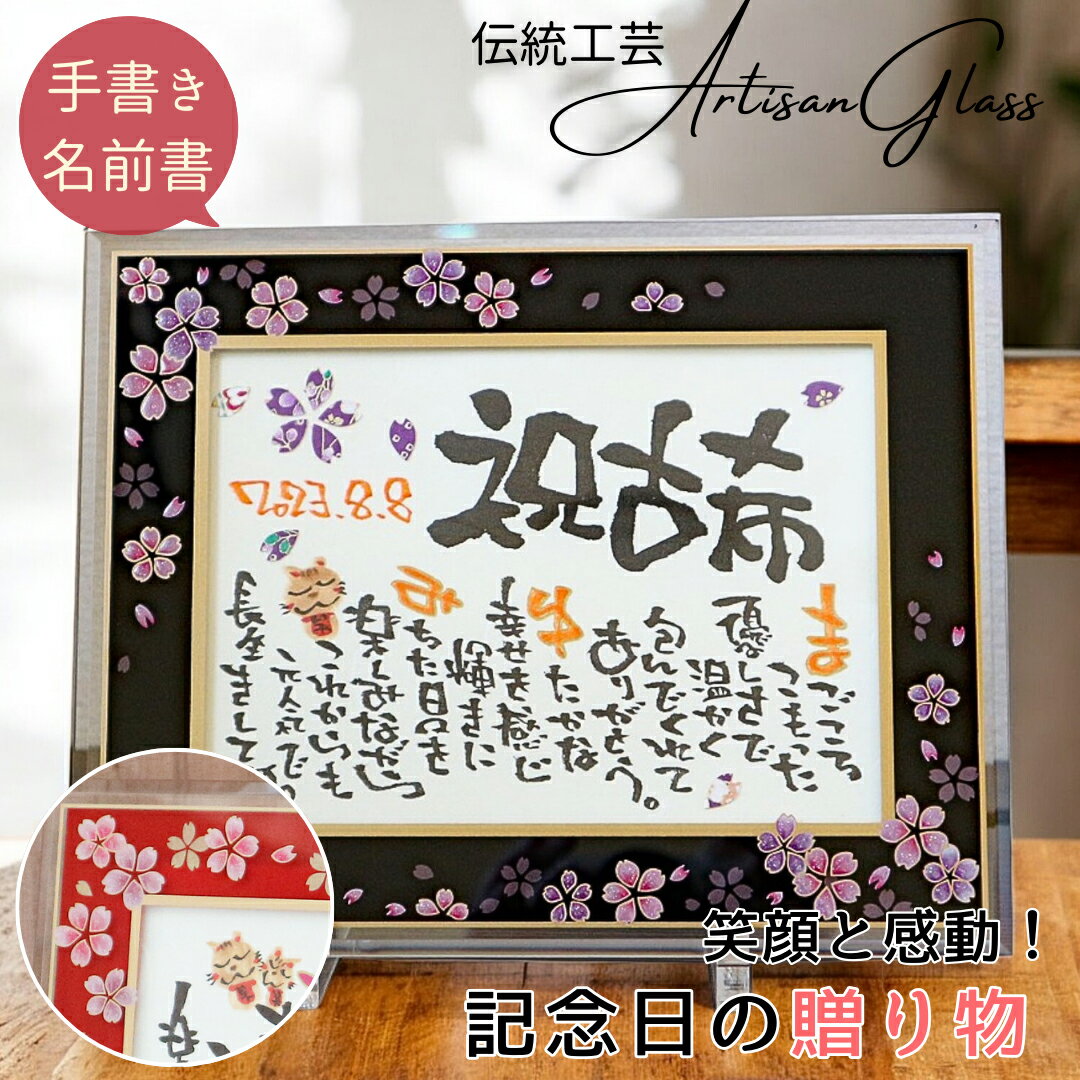 手書き
名前書
伝統工芸
Artisan Glass
祝古希
2023.8.8
まごころ
こもった
優しさで
温かく
包んでくれて
ありがとう。
ゆたかな
幸せを感じ
輝きに
みちた日々を
楽しみながら
これからも
元気で
長生きして
笑顔と感動！
記念日の贈り物